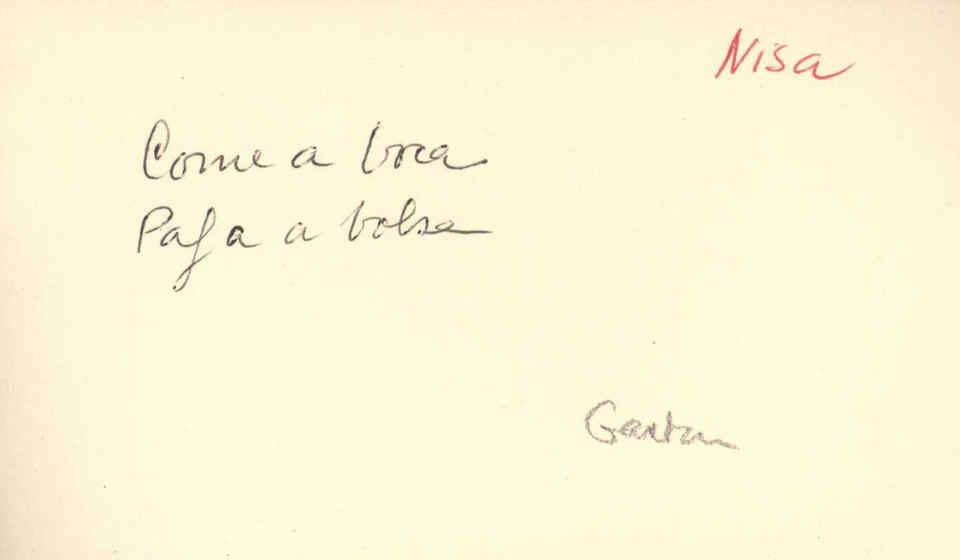 Nisa
Come a boca
Paga a bolsa